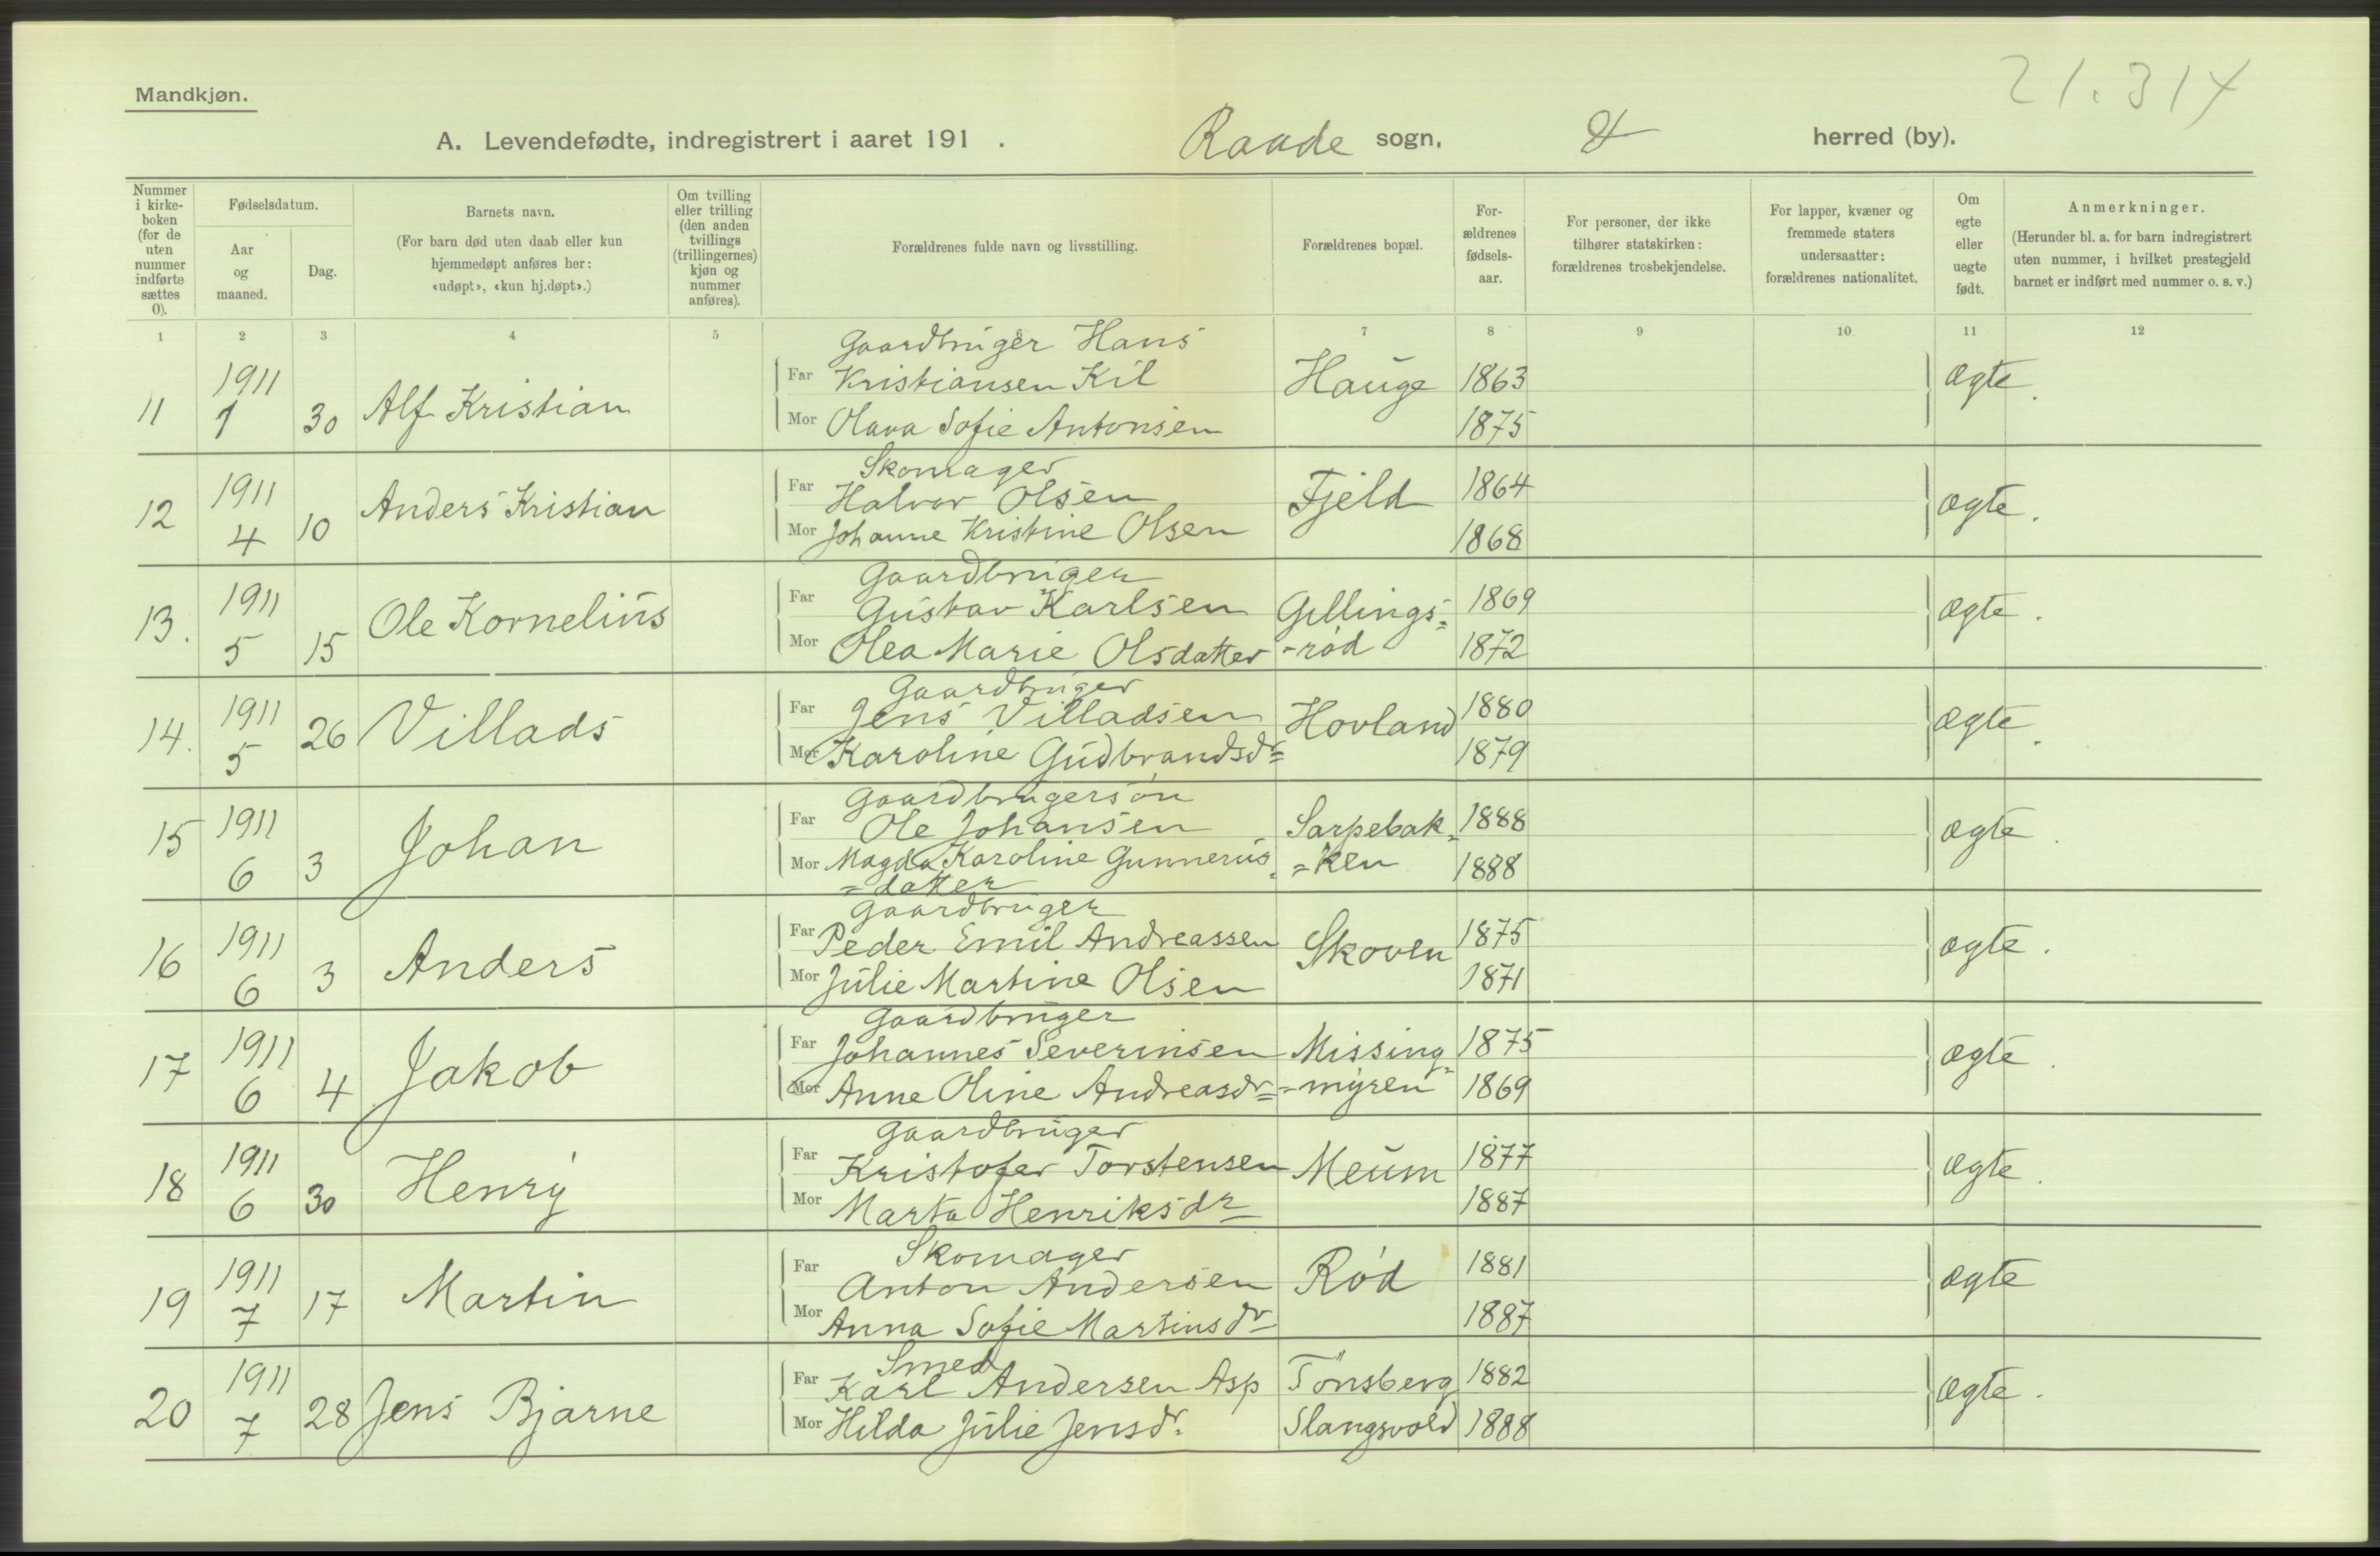 21.314
Mandkjøn.
A. Levendefødte, indregistrert i aaret 191 . Raade sogn, herred (by).
Nummer i kirke- boken (for de uten nummer indførte sættes 0).
Fødselsdatum.
Aar og maaned.
Dag.
Barnets navn.
(For barn død uten daab eller kun hjemmedøpt anføres her: «udøpt», «kun hj.døpt».)
Om tvilling eller trilling (den anden tvillings (trillingernes) kjøn og nummer anføres).
Forældrenes fulde navn og livsstilling.
Forældrenes bopæl.
For- ældrenes fødsels- aar.
For personer, der ikke tilhører statskirken: forældrenes trosbekjendelse.
For lapper, kvæner og fremmede staters undersaatter: forældrenes nationalitet.
Om egte eller uegte født.
Anmerkninger.
(Herunder bl. a. for barn indregistrert uten nummer, i hvilket prestegjeld barnet er indført med nummer o. s. v.)
1 2 3 4 5 6 7 8 9 10 11 12
Gaardbruger Hans
1911 Far Kristiansen Kil Hauge 1863 ægte.
11 1 30 Alf Kristian Mor Olava Sofie Antonsen 1875
Skomager
1911 Far Halvor Olsen Fjeld 1864 ægte.
12 4 10 Anders Kristian Mor Johanne Kristine Olsen 1868
Gaardbruger
1911 Far Gustav Karlsen Gillings= 1869 ægte.
13. 5 15 Ole Kornelius Mor Olea Marie Olsdatter -rød 1872
Gaardbruger
1911 Far Jens Villadsen Hovland 1880 ægte.
14. 5 26 Villads Mor Karoline Gudbrandsdr= 1879
Gaardbrugersøn
1911 Far Ole Johansen Sarpebak= 1888 ægte.
15 6 3 Johan Mor Magda Karoline Gunnerus= =ken 1888
=datter
Gaardbruger
1911 Far Peder Emil Andreassen Skoven 1875 ægte.
16 6 3 Anders Mor Julie Martine Olsen 1871
Gaardbruger
1911 Far Johannes Severinsen Missing= 1875 ægte.
17 6 4 Jakob Mor Anne Oline Andreasdr= =myren 1869
Gaardbruger
1911 Far Kristofer Torstensen Meum 1877 ægte.
18 6 30 Henry Mor Marta Henriksdr 1887
Skomager
1911 Far Anton Andersen Rød 1881 ægte
19 7 17 Martin Mor Anna Sofie Martinsdr 1887
Smed
1911 Far Karl Andersen Asp Tönsberg 1882 ægte.
20 7 28 Jens Bjarne Mor Hilda Julie Jensdr. Slangsvold 1888